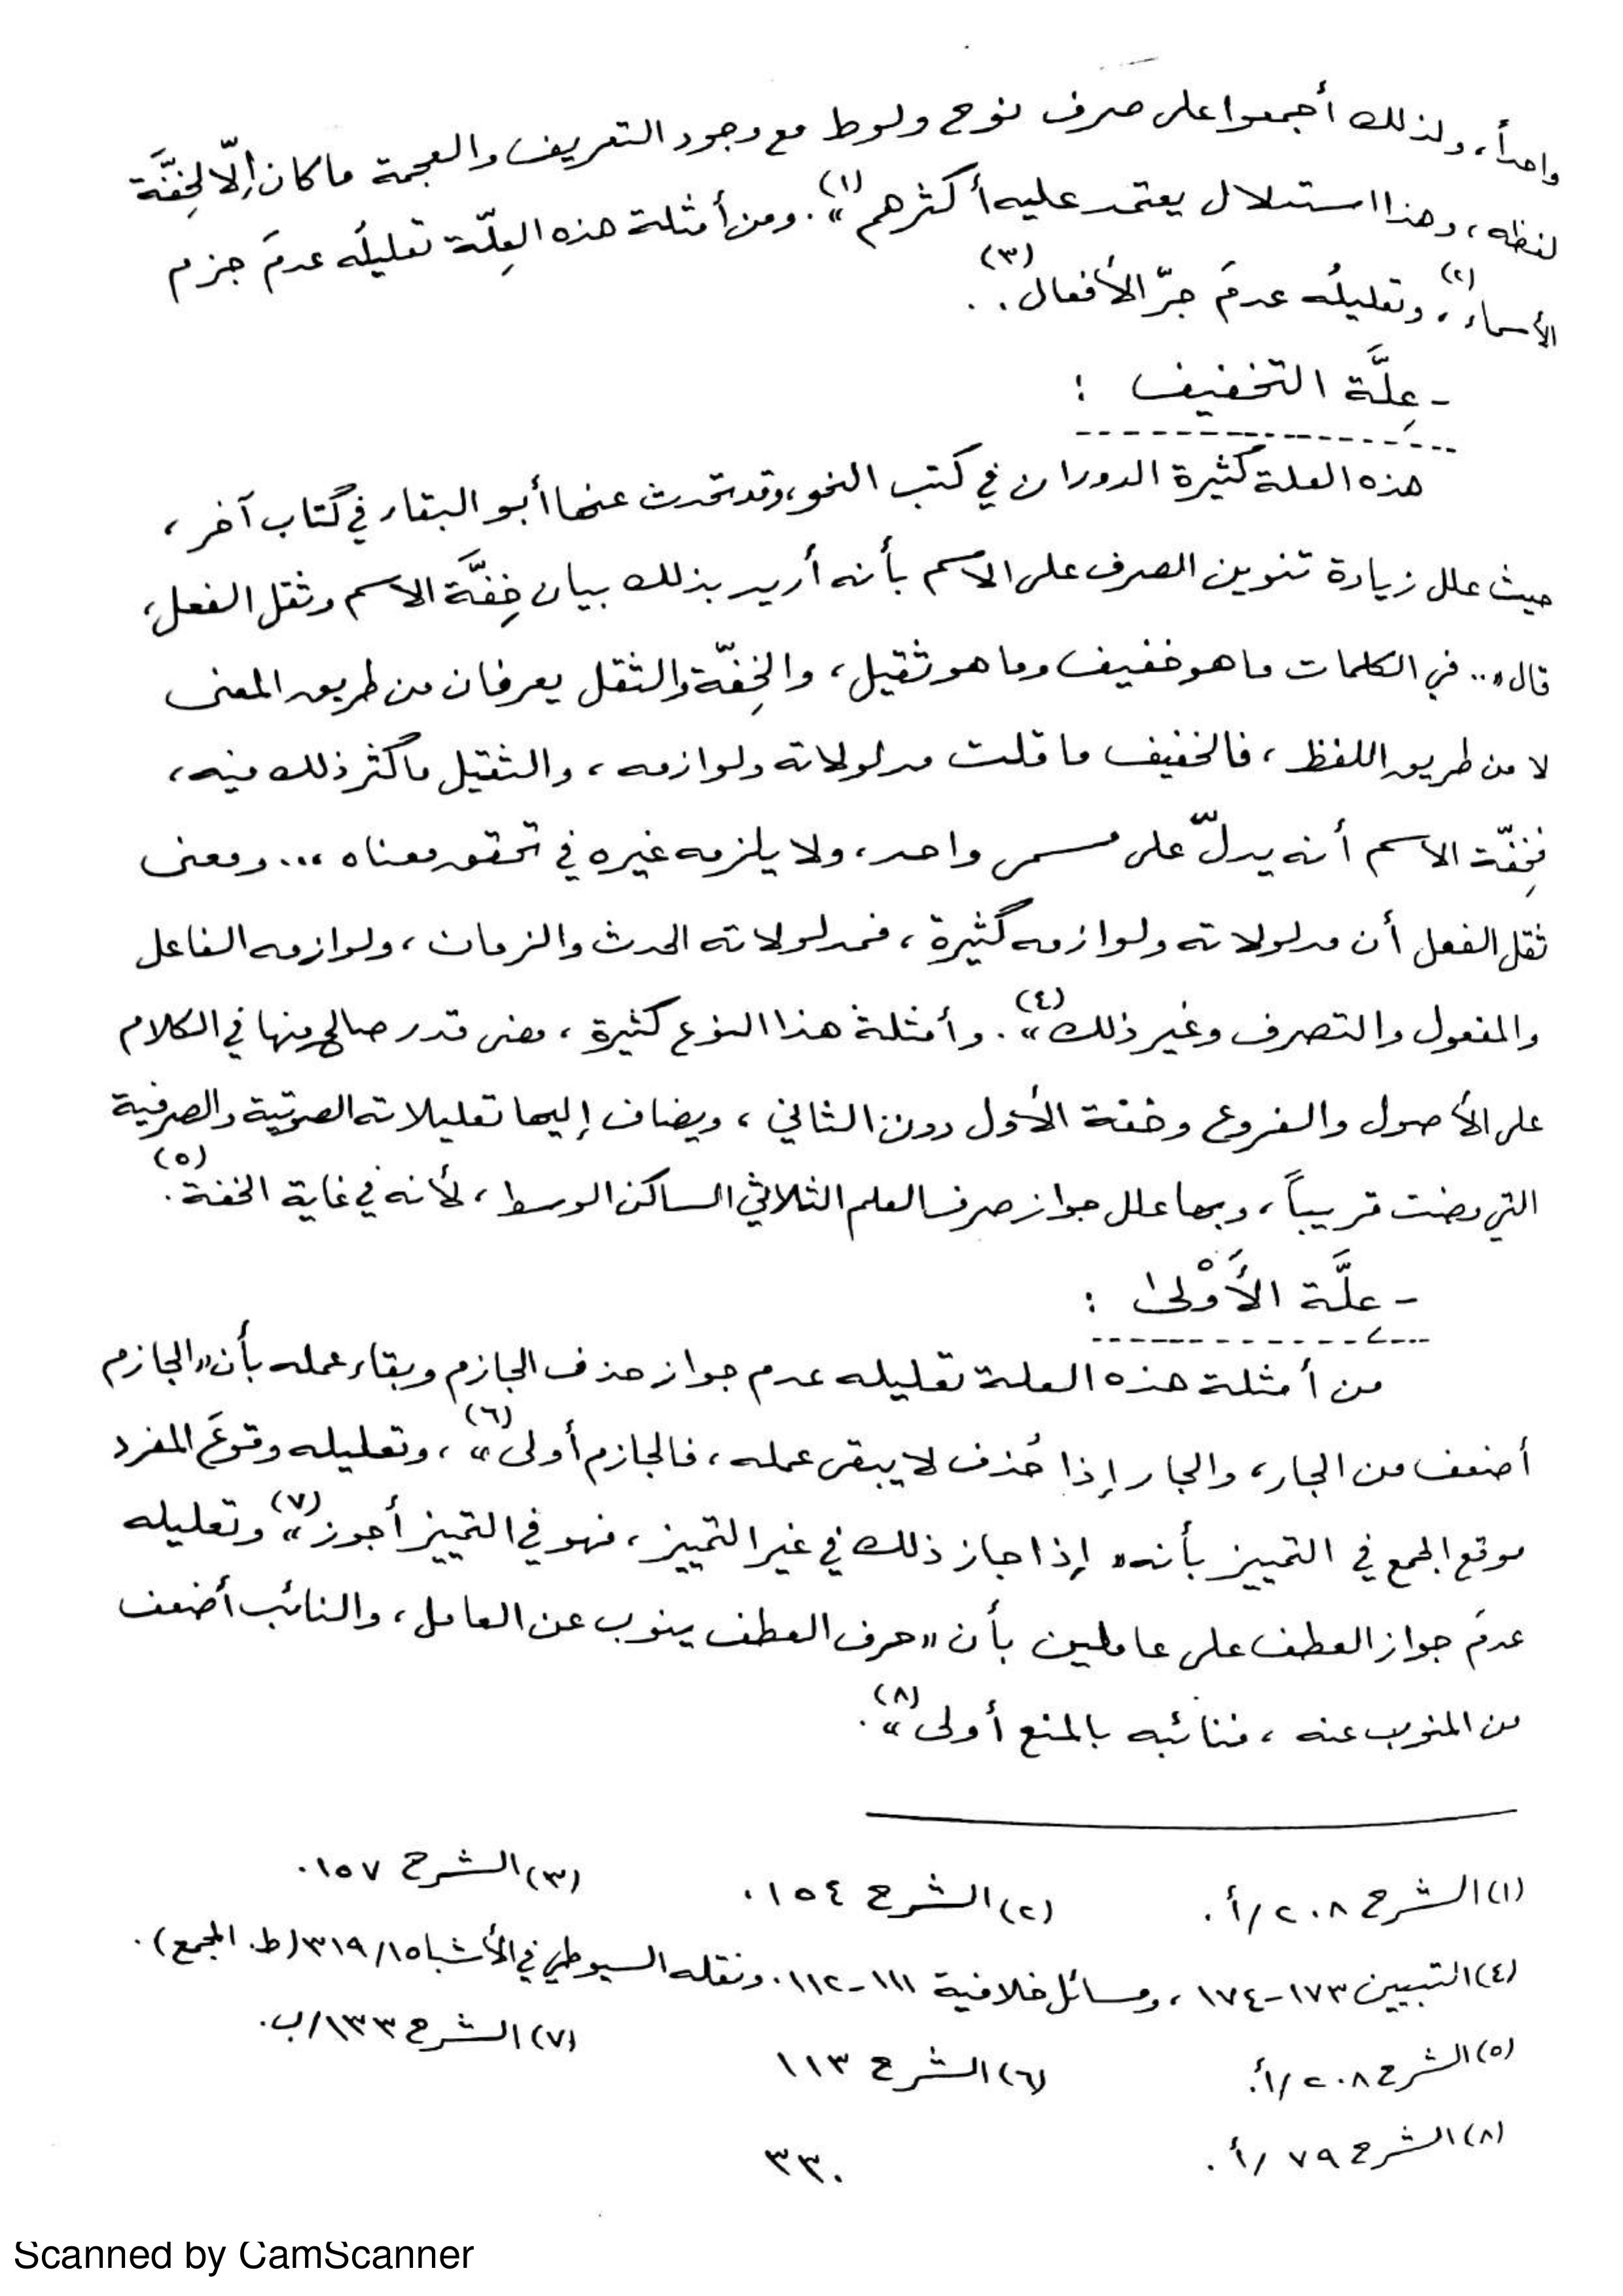 واحداً، ولذلك أجمعوا على صرف نوح ولوط مع وجود التعريف والعجمة ما كان إلّا لخِفَّة
لفظه، وهذا استدلال يعتمد عليه أكثرهم»(١). ومن أمثلة هذه العِلّة تعليلُه عدمَ جزم
الأسماء(٢)، وتعليلُه عدمَ جرّ الأفعال(٣)..
- عِلَّة التخفيف :
هذه العلة كثيرة الدوران في كتب النحو، وقد تحدث عنها أبو البقاء في كتاب آخر،
حيث علل زيادة تنوين الصرف على الاسم بأنه أريد بذلك بيان خِفَّة الاسم وثقل الفعل،
قال «.. في الكلمات ما هو خفيف وما هو ثقيل، والخِفّة والثقل يعرفان من طريق المعنى
لا من طريق اللفظ، فالخفيف ما قلت مدلولاته ولوازمه، والثقيل ما كثر ذلك فيه،
فخِفّة الاسم أنه يدلّ على مسمى واحد، ولا يلزمه غيره في تحقق معناه ،... ومعنى
ثقل الفعل أن مدلولاته ولوازمه كثيرة، فمدلولاته الحدث والزمان، ولوازمه الفاعل
والمفعول والتصرف وغير ذلك»(٤). وأمثلة هذا النوع كثيرة، مضى قدر صالح منها في الكلام
على الأصول والفروع وخفة الأول دون الثاني، ويضاف إليها تعليلاته الصوتية والصرفية
التي مضت قريباً، وبها علل جواز صرف العلم الثلاثي الساكن الوسط، لأنه في غاية الخفة(٥).
- علَّة الأَوْلىٰ :
من أمثلة هذه العلة تعليله عدم جواز حذف الجازم وبقاء عمله بأن «الجازم
أضعف من الجار، والجار إذا حُذف لا يبقى عمله، فالجازم أولى»(٦)، وتعليله وقوعَ المفرد
موقع الجمع في التمييز بأنه «إذا جاز ذلك في غير التمييز، فهو في التمييز أجوز»(٧) وتعليله
عدمَ جواز العطف على عاملين بأن «حرف العطف ينوب عن العامل، والنائب أضعف
من المنوب عنه، فنائبه بالمنع أولى»(٨).
(١) الشرح ٢٠٨/أ. (٢) الشرح ١٥٤. (٣) الشرح ١٥٧.
(٤) التبيين ١٧٣-١٧٤، ومسائل خلافية ١١١-١١٢. ونقله السيوطي في الأشباه ٣١٩/١ (ط. المجمع).
(٥) الشرح ٢٠٨/أ. (٦) الشرح ١١٣ (٧) الشرح ١٣٣/ب.
(٨) الشرح ٧٩/أ.
٣٣٠
Scanned by CamScanner